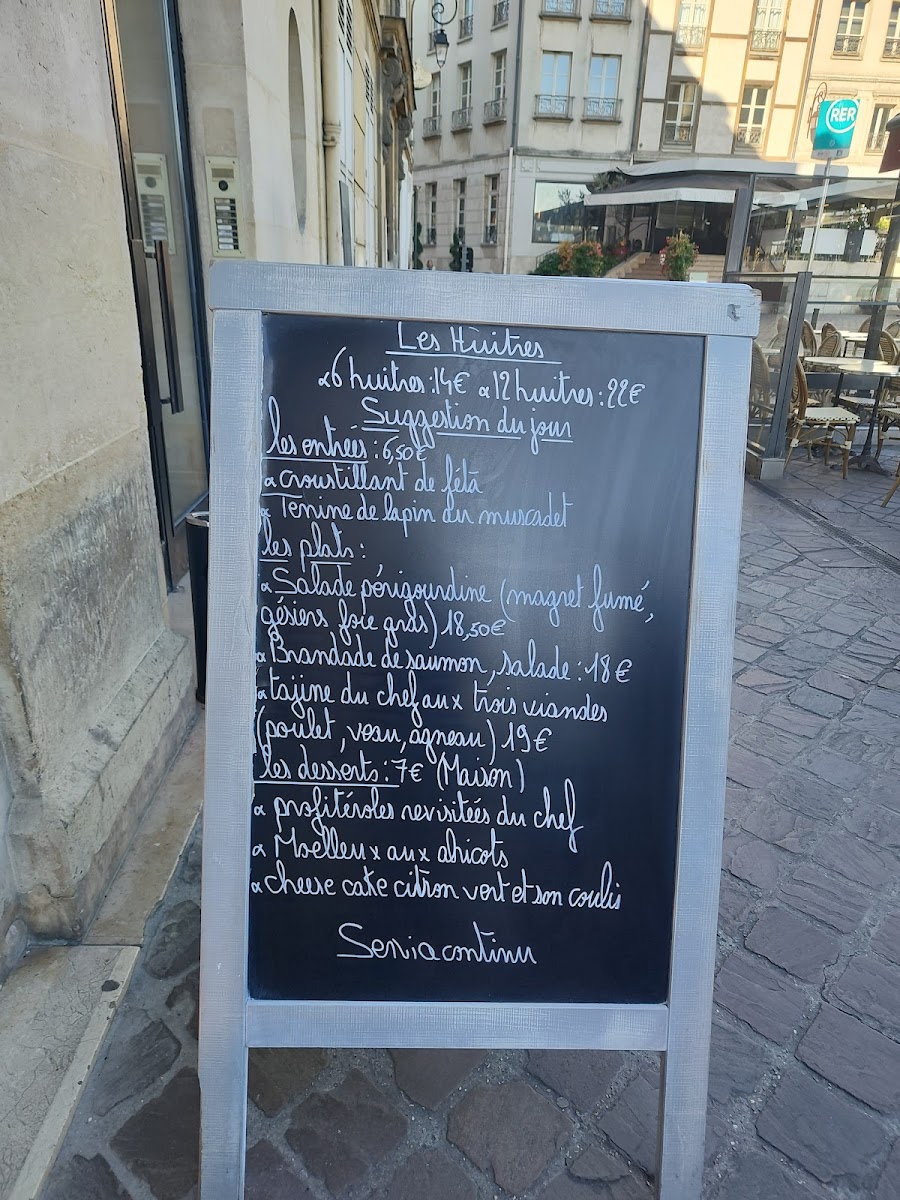 RER
Les Hûitres
* 6 huitres : 14€ * 12 huitres : 22€
Suggestion du jour
les entrées : 6,50€
* croustillant de fétà
* Terrine de lapin au muscadet
les plats :
* Salade périgourdine (magret fumé,
gésiers foie gras) 18,50€
* Brandade de saumon, salade : 18€
* tajine du chef aux trois viandes
(poulet, veau, agneau) 19€
les desserts : 7€ (Maison)
* profitéroles revisitées du chef
* Moelleux aux abricots
* cheese cake citron vert et son coulis
Servia continu